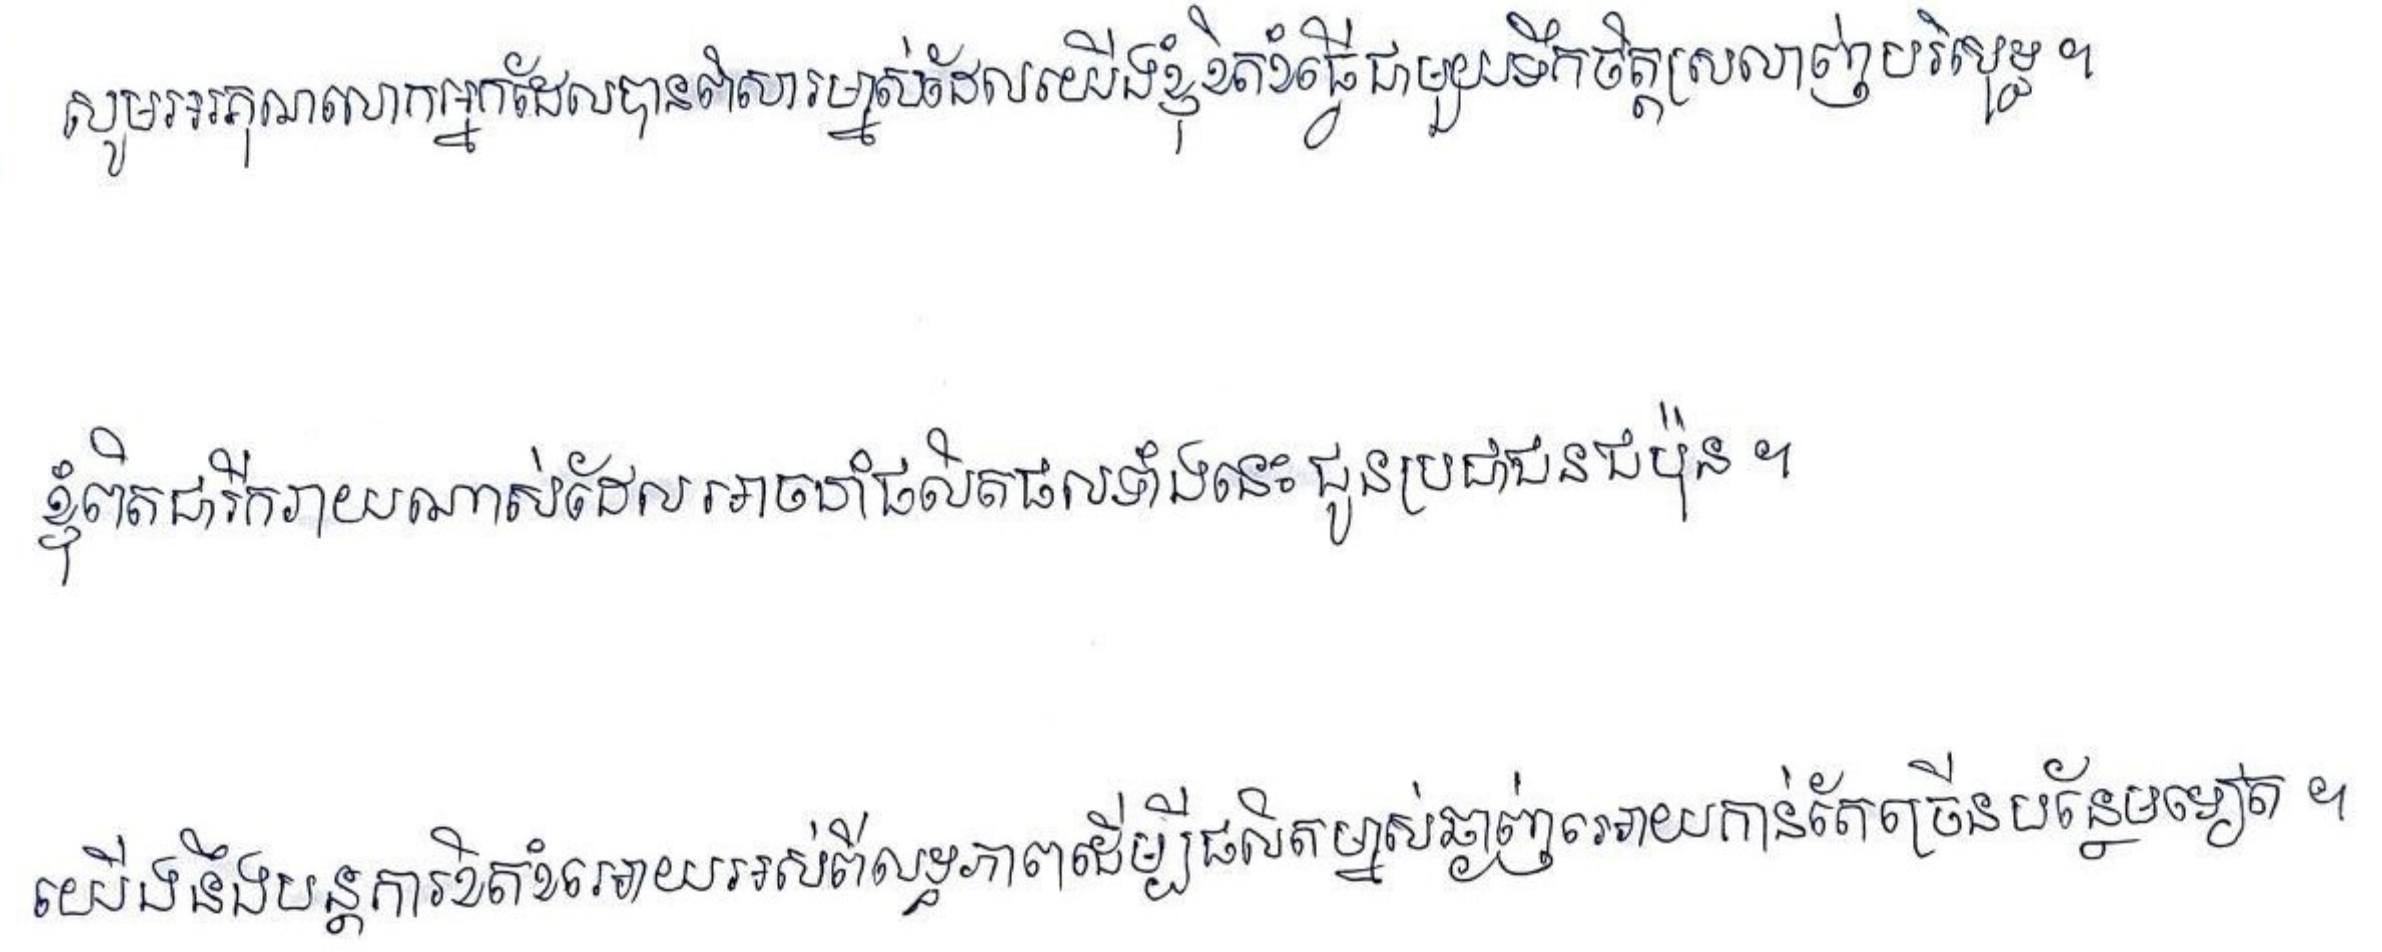 សូមអរគុណលោកអ្នកដែលបានពិសារម្នាស់ដែលយើងខ្ញុំខិតខំធ្វើជាមួយទឹកចិត្តស្រលាញ់បរិសុទ្ធ ។
ខ្ញុំពិតជារីករាយណាស់ដែលអាចនាំផលិតផលទាំងនេះ ជូនប្រជាជនជប៉ុន ។
យើងនឹងបន្តការខិតខំអោយអស់ពីលទ្ធភាពដើម្បីផលិតម្នាស់ឆ្ងាញ់អោយកាន់តែច្រើនបន្ថែមទៀត ។